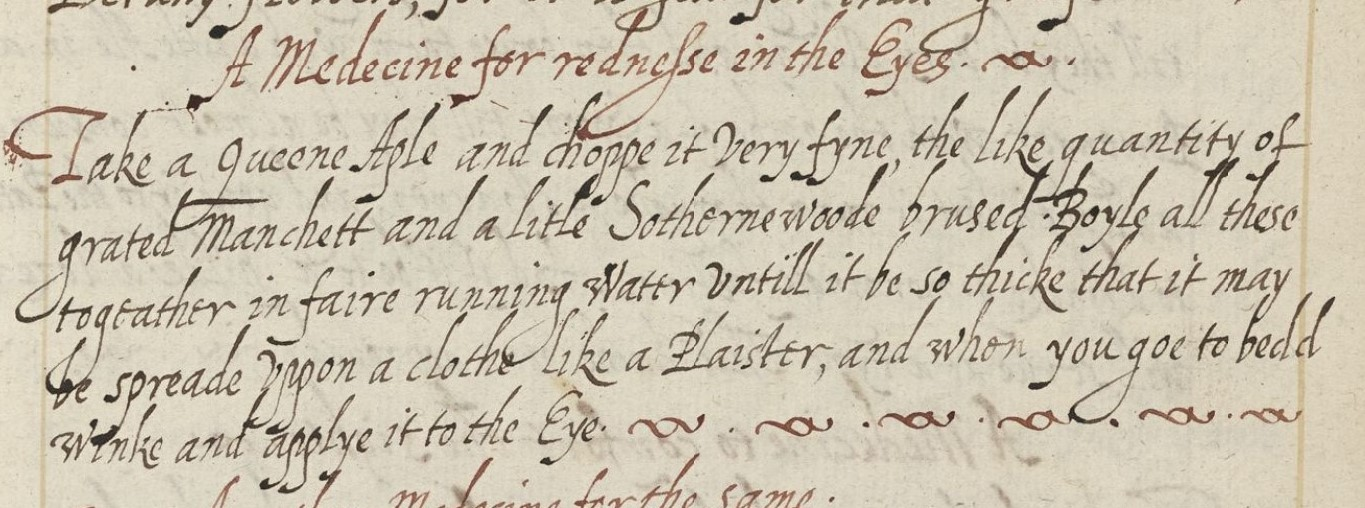 A Medecine for rednesse in the Eyes.
Take a Queene Aple and choppe it Very fyne, the like quantity of
grated Manchett and a litle Sothernewoode brused. Boyle all these
togeather in faire running Watter Vntill it be so thicke that it may
be spreade Vppon a clothe like a Plaister, and when you goe to bedd
Winke and applye it to the Eye.
Medecine for the same.